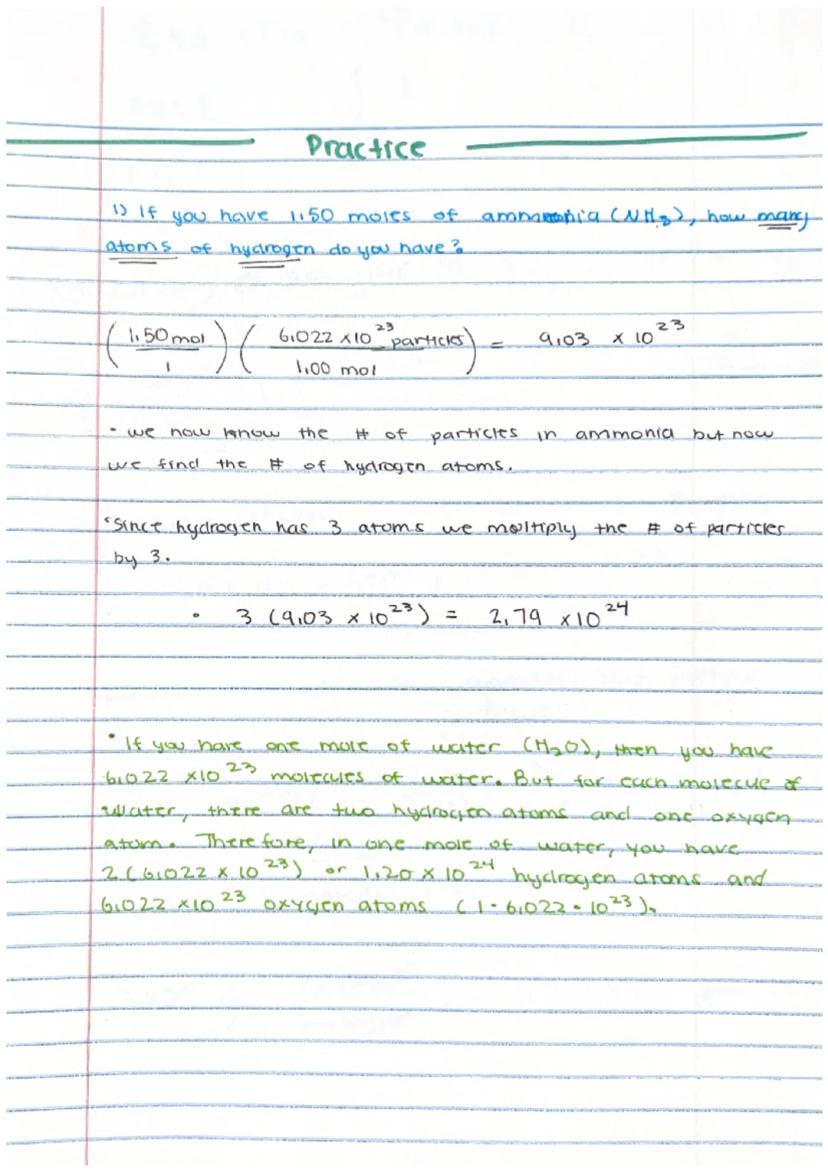 Practice
1) If you have 1.50 moles of ammonia (NH3), how many
atoms of hydrogen do you have?
(1.50 mol / 1) (6.022 × 10^23 particles / 1.00 mol) = 9.03 × 10^23
· we now know the # of particles in ammonia but now
we find the # of hydrogen atoms.
· Since hydrogen has 3 atoms we moltiply the # of particles
by 3.
· 3 (9.03 × 10^23) = 2.79 × 10^24
· If you have one mole of water (H2O), then you have
6.022 × 10^23 molecules of water. But for each molecue of
water, there are two hydrogen atoms and one oxygen
atom. Therefore, in one mole of water, you have
2 (6.022 × 10^23) or 1.20 × 10^24 hydrogen atoms and
6.022 × 10^23 oxygen atoms (1 · 6.022 · 10^23).